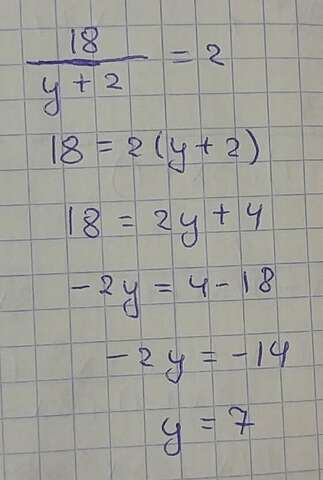 18/(y + 2) = 2
18 = 2(y + 2)
18 = 2y + 4
-2y = 4 - 18
-2y = -14
y = 7